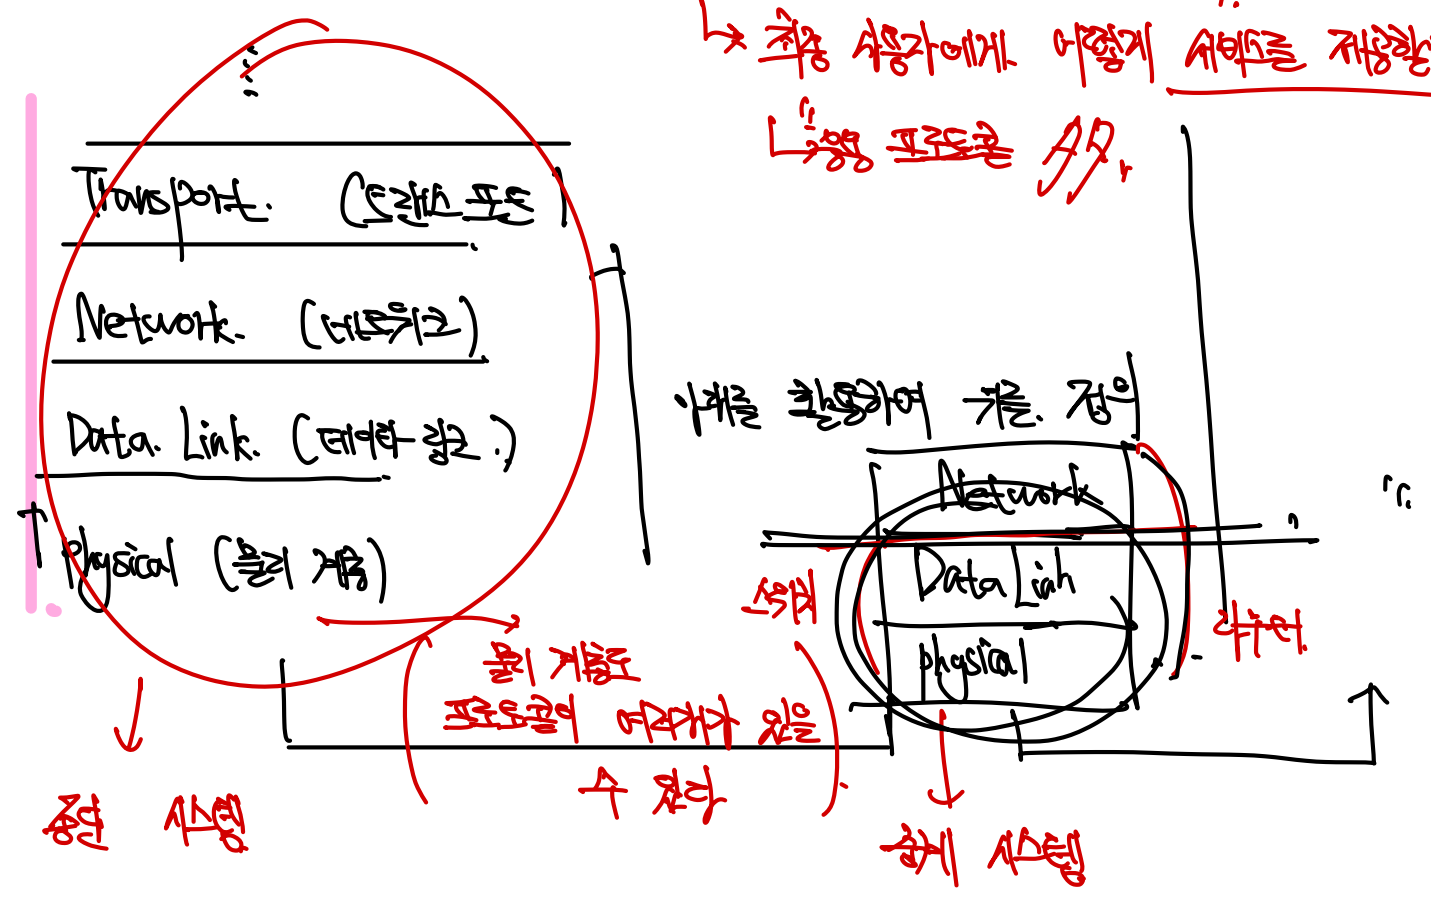 최종 사용자에게 어떻게 서비스를 제공할
응용 프로토콜
Transport. (트랜스포트)
Network. (네트워크)
Data. Link. (데이터 링크.)
Physical (물리 계층)
아래를 활용하여 규율. 정의
Network
Data Link
physical
스위치
라우터
물리 계층도
프로토콜이 여러개가 있을
수 있다
종단 시스템
중계 시스템